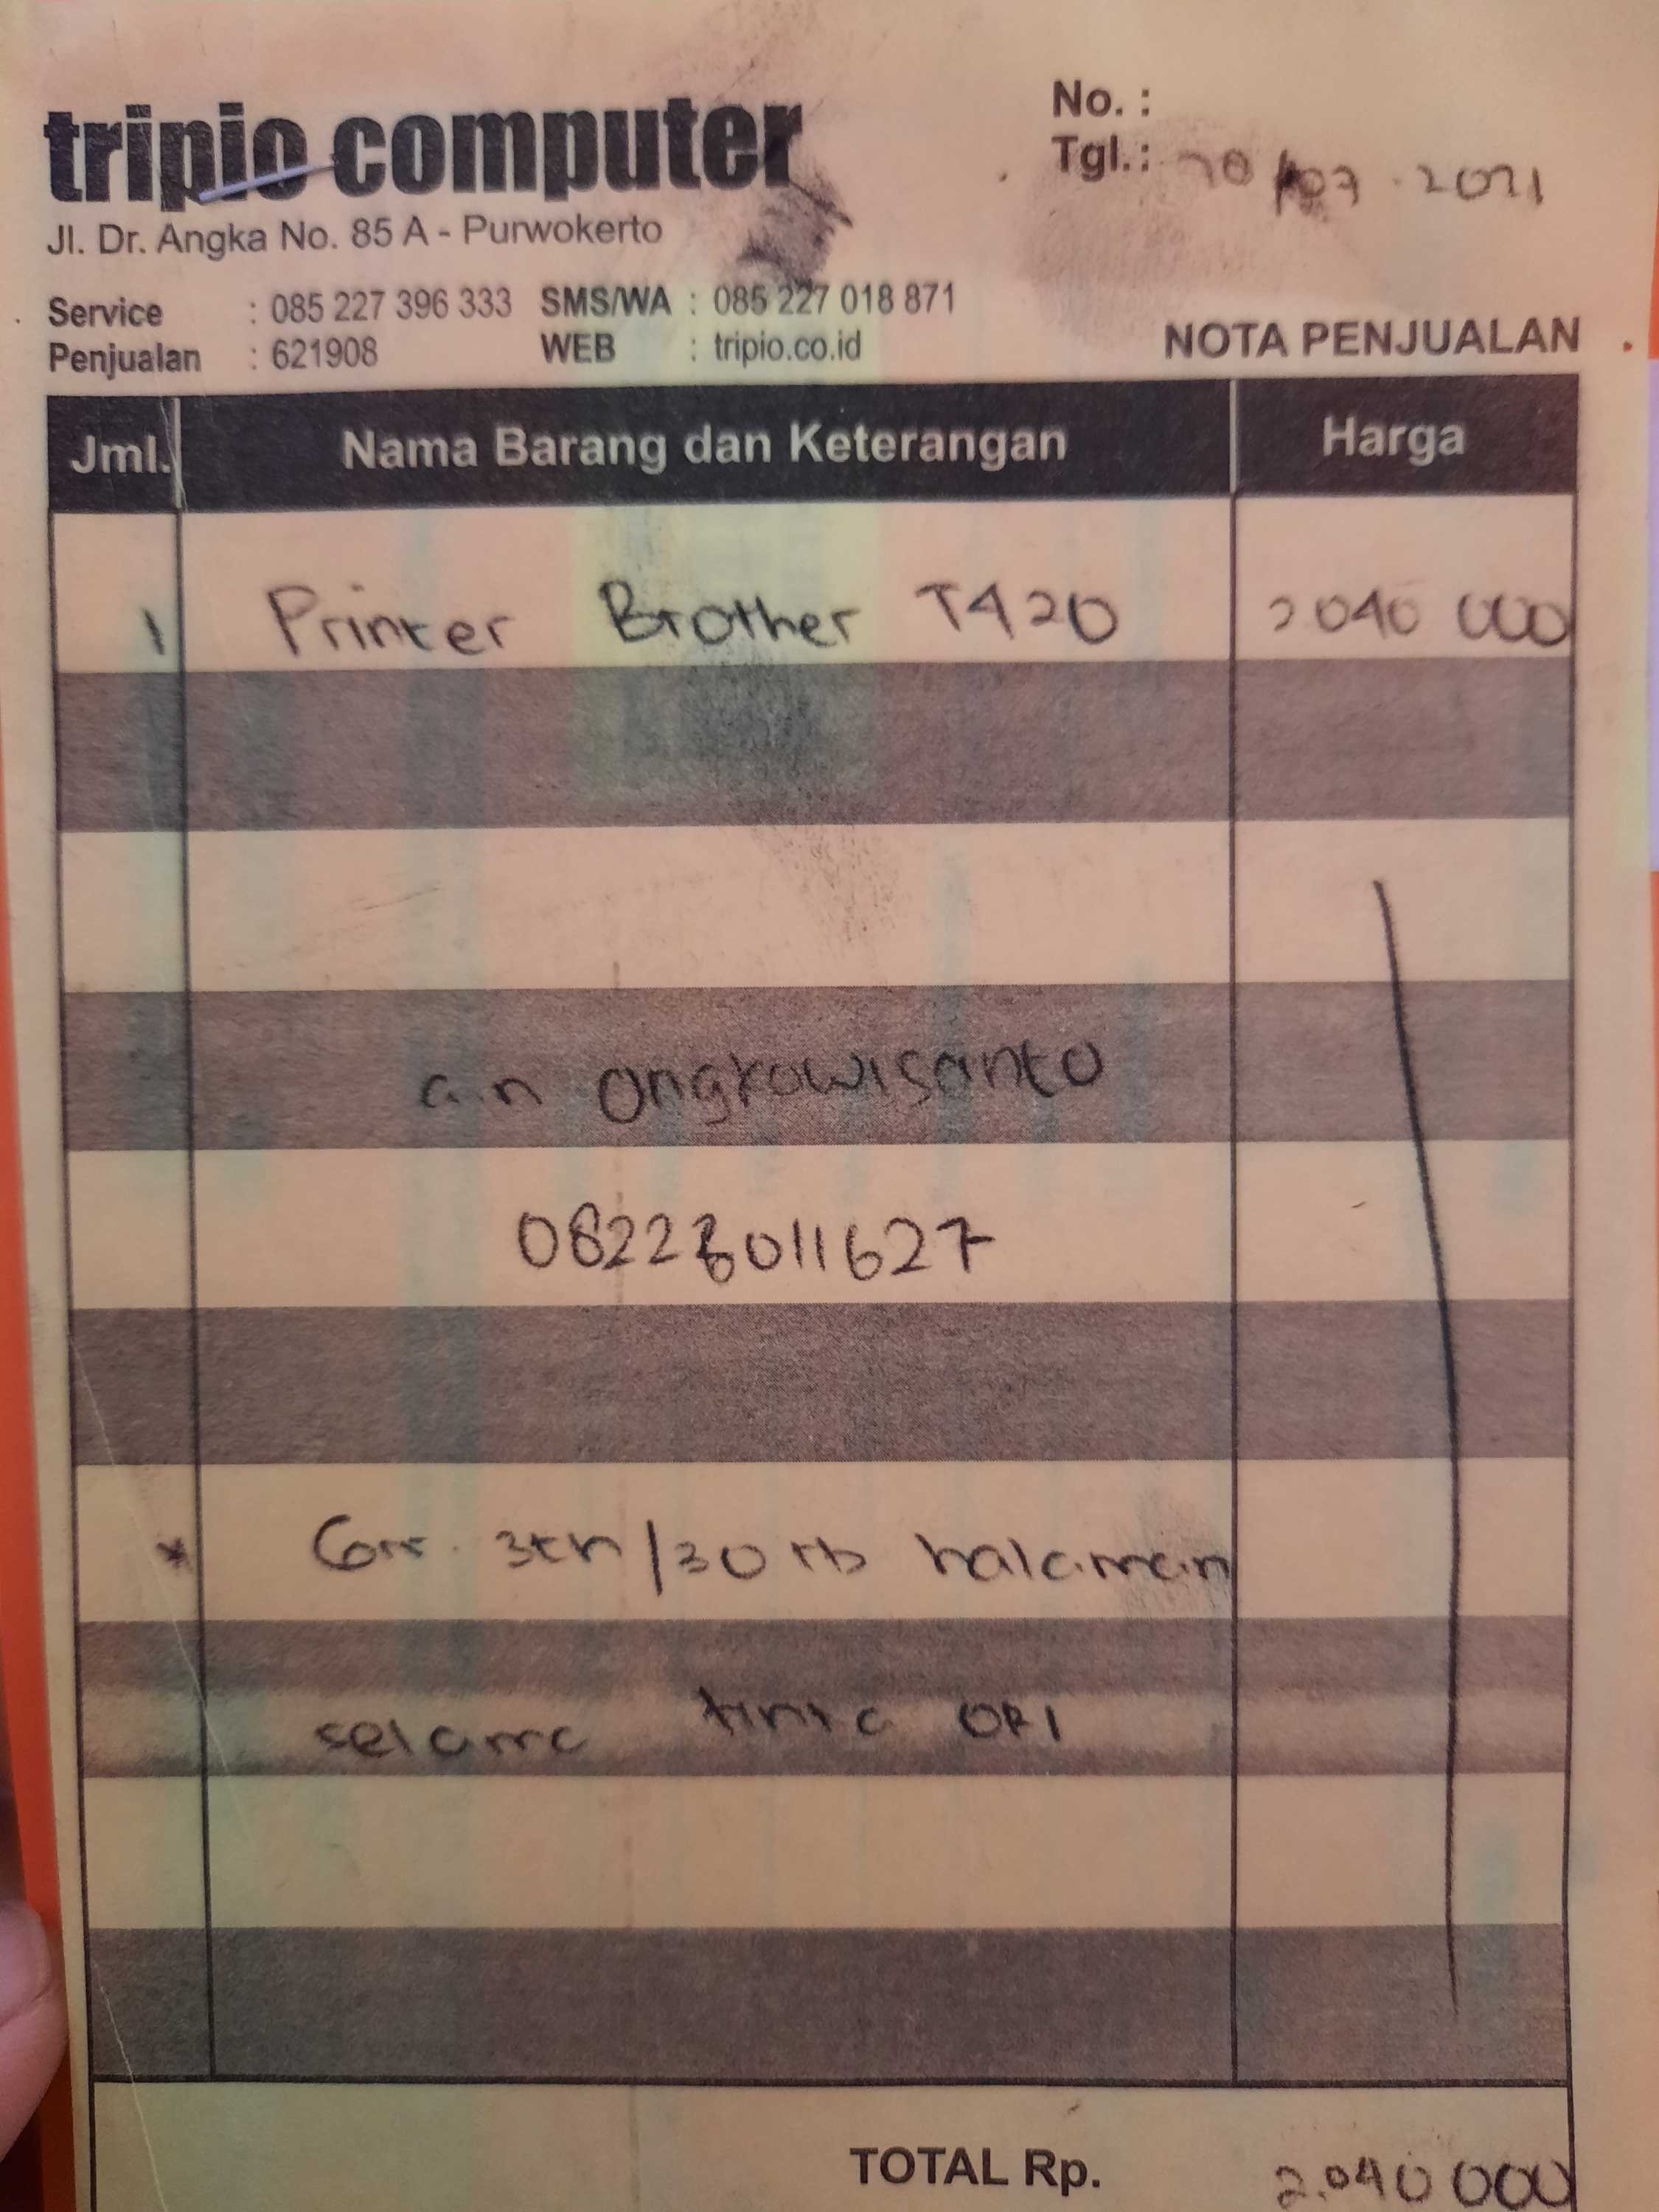 tripio computer
Jl. Dr. Angka No. 85 A - Purwokerto
Service : 085 227 396 333 SMS/WA : 085 227 018 871
Penjualan : 621908 WEB : tripio.co.id
No. :
Tgl. : 07 . 2021
NOTA PENJUALAN
Jml. Nama Barang dan Keterangan Harga
1 Printer Brother T420 2 040 000
a.n ongkowisanto
* Gar. 3th/30 rb halaman
selama tinta ORI
TOTAL Rp. 2.040 000